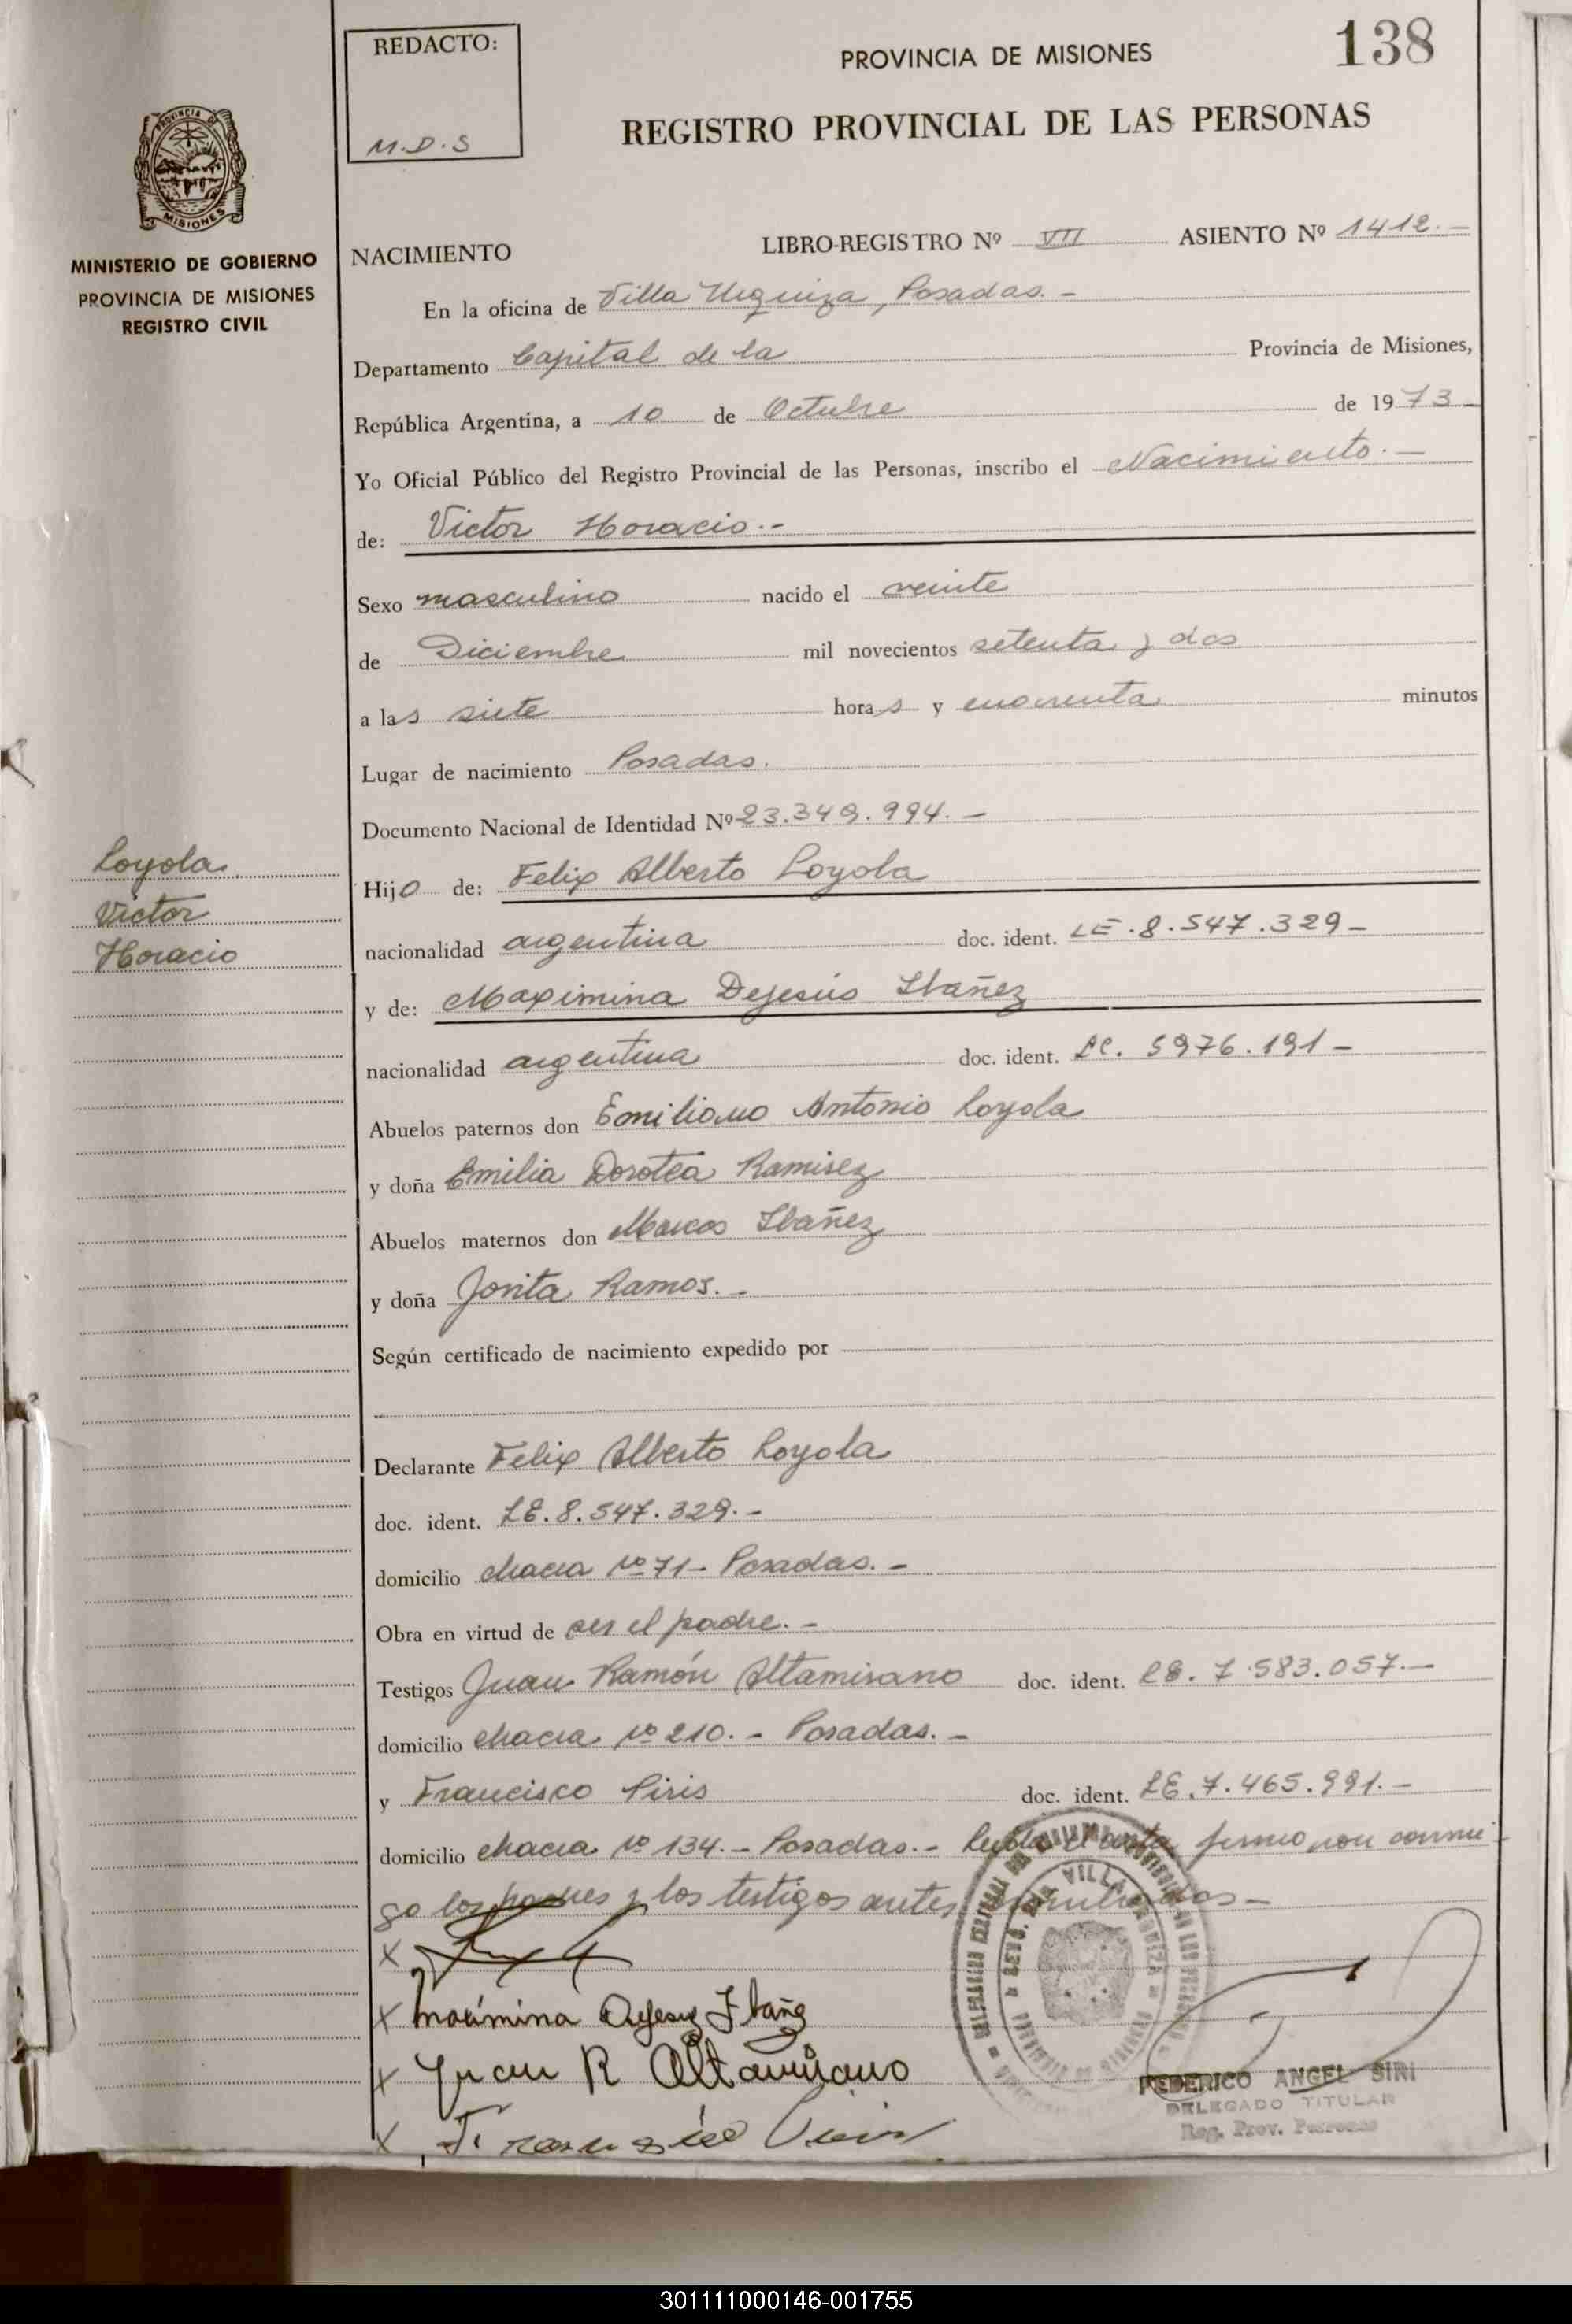 REDACTO:
M.D.S
138
PROVINCIA DE MISIONES
REGISTRO PROVINCIAL DE LAS PERSONAS
PROVINCIA DE
MISIONES
MINISTERIO DE GOBIERNO
PROVINCIA DE MISIONES
REGISTRO CIVIL
NACIMIENTO LIBRO-REGISTRO Nº VII ASIENTO Nº 1412.-
En la oficina de Villa Urquiza, Posadas.-
Departamento Capital de la Provincia de Misiones,
República Argentina, a 10 de Octubre de 1973
Yo Oficial Público del Registro Provincial de las Personas, inscribo el Nacimiento.-
de: Victor Horacio.-
Sexo masculino nacido el veinte
de Diciembre mil novecientos setenta y dos
a las siete horas y cuarenta minutos
Lugar de nacimiento Posadas.
Documento Nacional de Identidad Nº 23.349.994.-
Loyola
Victor
Horacio
Hijo de: Felix Alberto Loyola
nacionalidad argentina doc. ident. LE.8.547.329-
y de: Maximina Dejesús Ibañez
nacionalidad argentina doc. ident. LC. 5976.191-
Abuelos paternos don Emiliano Antonio Loyola
y doña Emilia Dorotea Ramirez
Abuelos maternos don Marcos Ibañez
y doña Jovita Ramos.-
Según certificado de nacimiento expedido por
Declarante Felix Alberto Loyola
doc. ident. LE.8.547.329.-
domicilio chacra Nº 71- Posadas.-
Obra en virtud de ser el padre.-
Testigos Juan Ramón Altamirano doc. ident. LE. 7.583.057.-
domicilio chacra Nº 210.- Posadas.-
y Francisco Piris doc. ident. LE.7.465.991.-
domicilio chacra Nº 134.- Posadas.- Leida el acta firman con conmi-
go los padres y los testigos antes nombrados-
X
X Maximina Dejesus Ibañez
X Juan R Altamirano
X Francisco Piris
VILLA URQUIZA
FEDERICO ANGEL SIRI
DELEGADO TITULAR
Reg. Prov. Personas
301111000146-001755